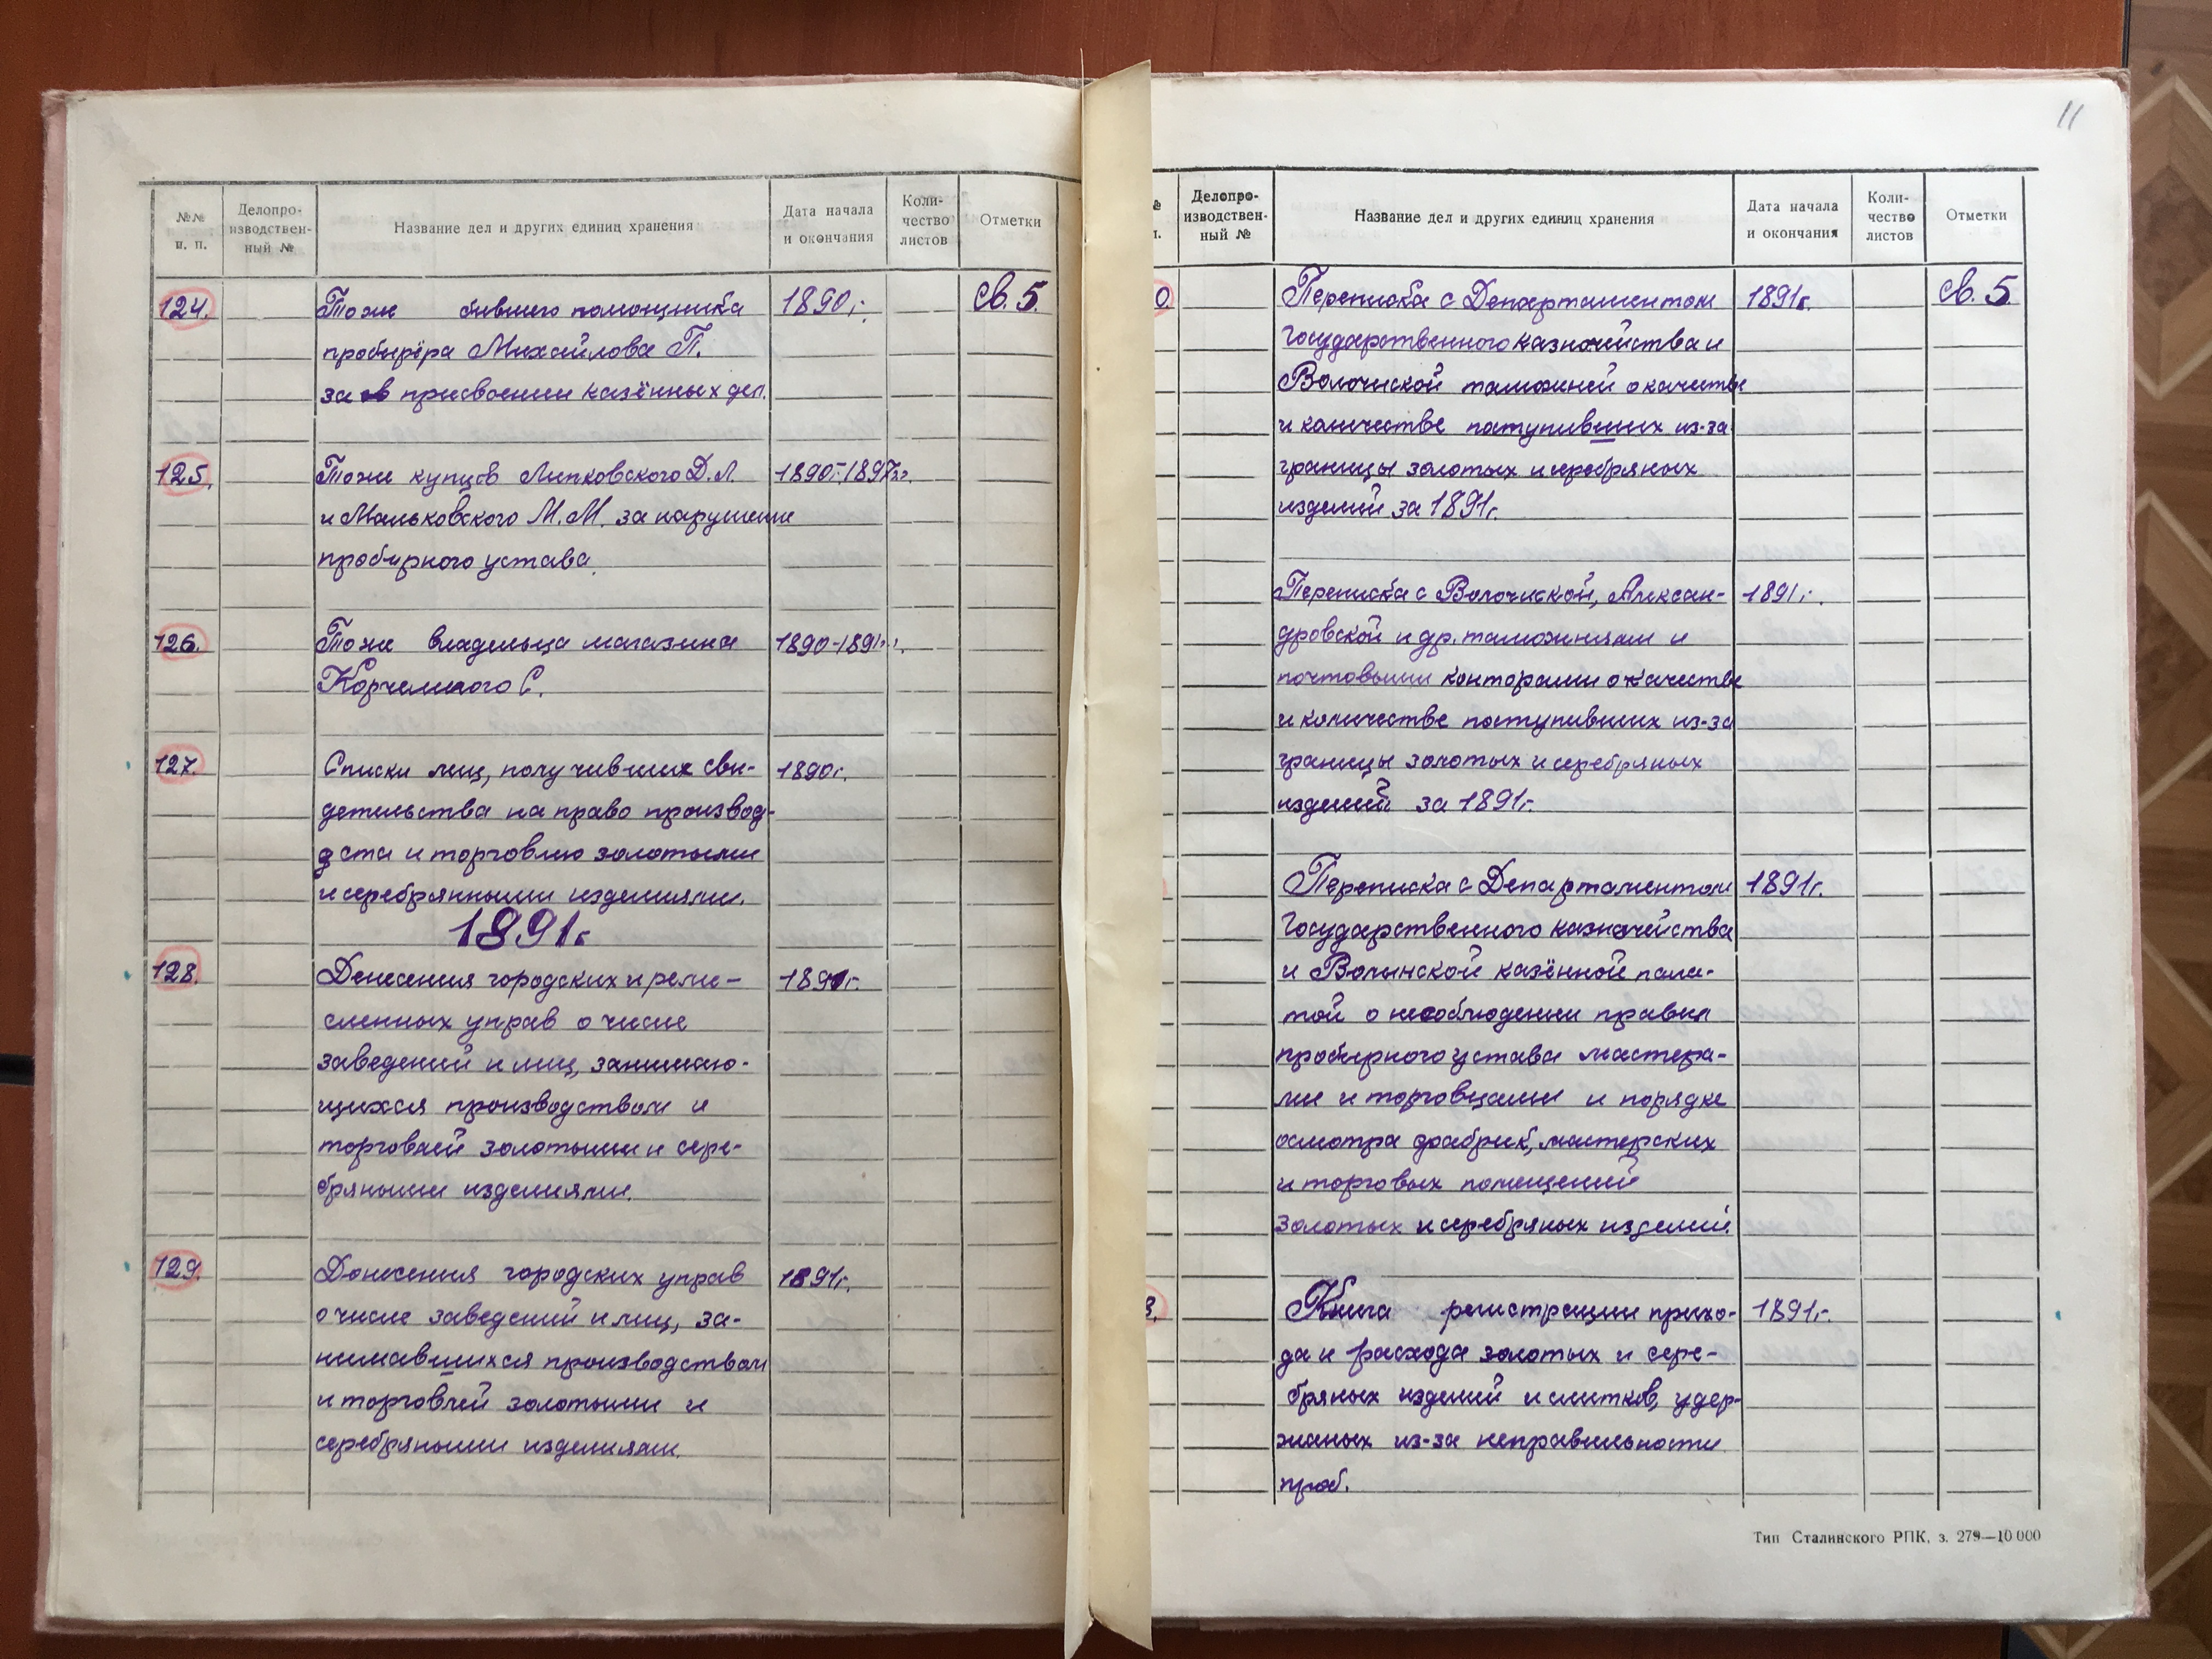 №№ п. п.
Делопро-
изводствен-
ный №
Название дел и других единиц хранения
Дата начала
и окончания
Коли-
чество
листов
Отметки
124. Тоже бывшего помощника 1890г. св. 5.
пробирёра Михайлова П.
за присвоении казённых ден.
125. Тоже купцов Липковского Д.Л. 1890-1897гг.
и Маньковского М.М. за нарушение
пробирного устава.
126. Тоже владельца магазина 1890-1891гг.
Корчемного С.
127. Списки лиц, получивших сви- 1890г.
детельства на право производ-
дста и торговлю золотыми
и серебрянными изделиями.
1891г
128. Донесения городских и реме- 1891г.
сленных управ о числе
заведений и лиц, занимаю-
щихся производством и
торговлей золотыми и сере-
бряными изделиями.
129. Донесения городских управ 1891г.
о числе заведений и лиц, за-
нимавшихся производством
и торговлей золотыми и
серебряными изделиями.
11
№
п.
Делопро-
изводствен-
ный №
Название дел и других единиц хранения
Дата начала
и окончания
Коли-
чество
листов
Отметки
0. Переписка с Департаментом 1891г. св. 5
Государственного казначейства и
Волочиской таможней о качестве
и количестве поступивших из-за
границы золотых и серебряных
изделий за 1891г.
Переписка с Волочиской, Алексан- 1891г.
дровской и др. таможнями и
почтовыми конторами о качестве
и количестве поступивших из-за
границы золотых и серебряных
изделий за 1891г.
Переписка с Департаментом 1891г.
Государственного казначейства
и Волынской казённой пала-
той о несоблюдении правил
пробирного устава мастера-
ми и торговцами и порядке
осмотра фабрик, мастерских
и торговых помещений
золотых и серебряных изделий.
3. Книга регистрации прихо- 1891г.
да и расхода золотых и сере-
бряных изделий и слитков, удер-
жаных из-за неправильности
проб.
Тип Сталинского РПК, з. 279—10 000